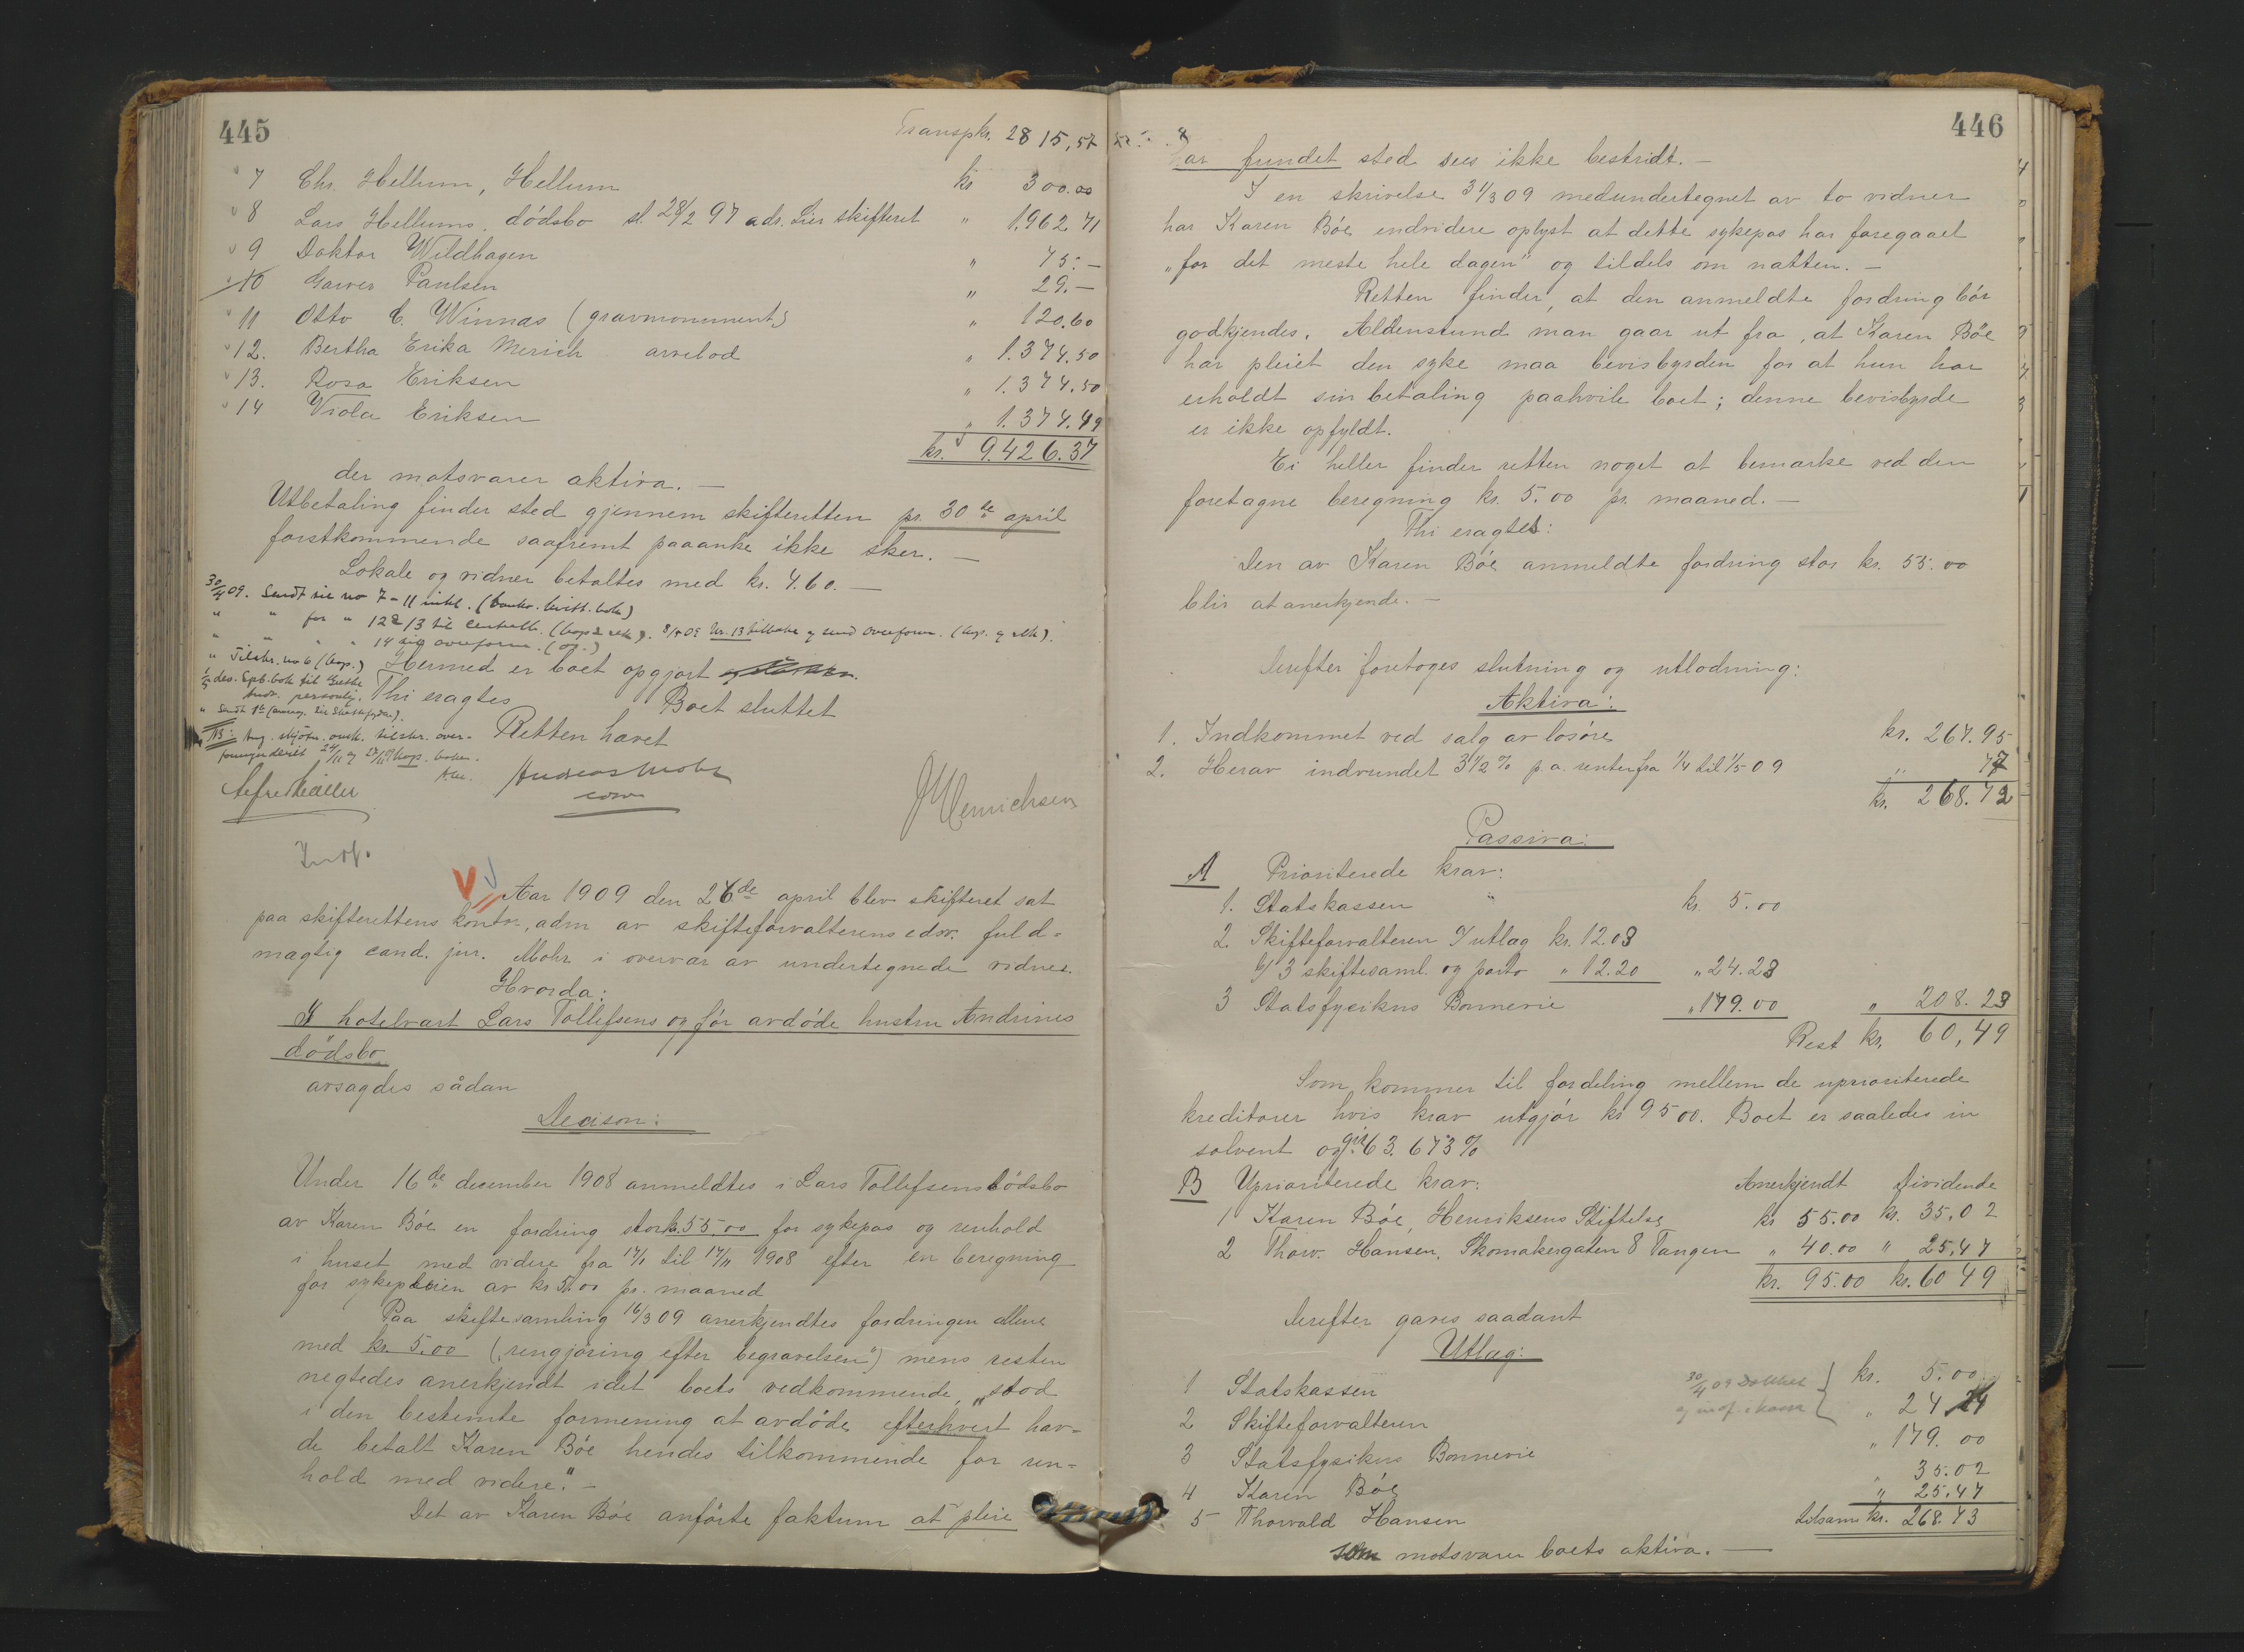 445
Transpkr. 2815,57
7 Chr. Hellum, Hellum kr 300.00
8 Lars Hellums dödsbo sl. 28/2 97 adr. Lier skifteret " 1.962.71
9 Doktor Wildhagen " 75.-
10 Garver Paulsen " 29.-
11 Otto C. Winnas (gravmonument) " 120.60
12. Bertha Erika Merich arvelod " 1.374.50
13. Rosa Eriksen " 1.374.50
14 Viola Eriksen " 1.374.49
kr. 9.426.37
der motsvarer aktiva. -
Utbetaling finder sted gjennem skifteretten pr. 30te april
førstkommende saafremt paaanke ikke sker. -
Lokale og vidner betaltes med kr. 4.60. -
30/4 09. Sendt til no 7-11 inkl. (bankr. kvitt. bok)
" " for " 12 & 13 til
" " " " 14 til overform.
" Tilskr. no 6 (kop.)
Hermed er boet opgjort
Thi eragtes
Boet sluttet
Retten hævet
Andreas Mohr
const
J Henrichsen
Aar 1909 den 26de april blev skifteret sat
paa skifterettens kontor, adm av skifteforvalterens edsv. fuld-
mægtig cand. jur. Mohr i overvær av undertegnede vidner.
Hvorda:
I hotelvært Lars Tollefsens og før avdöde hustru Andrines
dödsbo
avsagdes sådan
Decison:
Under 16de december 1908 anmeldtes i Lars Tollefsens dödsbo
av Karen Böe en fordring stor kr. 55.00 for sykepas og renhold
i huset med videre fra 17/1 til 17/11 1908 efter en beregning
for sykepleien av kr 5.00 pr. maaned
Paa skiftesamling 16/3 09 anerkjendtes fordringen allene
med kr. 5.00 ("rengjöring efter begravelsen") mens resten
negtedes anerkjendt idet boets vedkommende "stod
i den bestemte formening at avdöde efterhvert hav-
de betalt Karen Böe hendes tilkommende for ren-
hold med videre". -
Det av Karen Böe anförte faktum at pleie
446
har fundet sted sees ikke bestridt. -
I en skrivelse 31/3 09 medundertegnet av to vidner
har Karen Böe endvidere oplyst at dette sykepas har foregaaet
"for det meste hele dagen" og tildels om natten. -
Retten finder, at den anmeldte fordring bör
godkjendes. Aldenstund man gaar ut fra, at Karen Böe
har pleiet den syke maa bevisbyrden for at hun har
erholdt sin betaling paahvile boet; denne bevisbyrde
er ikke opfyldt.
Ei heller finder retten noget at bemærke ved den
foretagne beregning kr. 5.00 pr. maaned. -
Thi eragtes:
Den av Karen Böe anmeldte fordring stor kr. 55.00
blir at anerkjende. -
Derefter foretoges slutning og utlodning:
Aktiva:
1. Indkommet ved salg av lösöre kr. 267.95
2. Herav indvundet 3 1/2 % p.a. renter fra 1/4 til 1/5 09 " 77
kr. 268.72
Passiva:
A Prioriterede krav:
1. Statskassen " kr. 5.00
2. Skifteforvalteren a/ utlæg kr. 12.03
b/ 3 skiftesaml. og porto " 12.20 " 24.23
3 Statsfysikus Bonnevie " 179.00 " 208.23
Rest kr. 60,49
Som kommer til fordeling mellem de uprioriterede
kreditorer hvis krav utgjör kr 95 00. Boet er saaledes in
solvent og gir 63.673 %
B Uprioriterede krav: Anerkjendt Dividende
1 Karen Böe, Henriksens Stiftelse kr 55.00 kr. 35.02
2 Thorv. Hansen. Skomakergaten 8 Tangen " 40.00 " 25,47
kr. 95.00 kr. 60 49
Derefter gaves saadant
Utlæg:
1 Statskassen kr. 5.00
30/4 09
2 Skifteforvalteren " 24 24
3 Statsfysikus Bonnevie " 179.00
4 Karen Böe " 35.02
5 Thorvald Hansen " 25.47
tilsam. kr. 268.73
som motsvarer boets aktiva. -